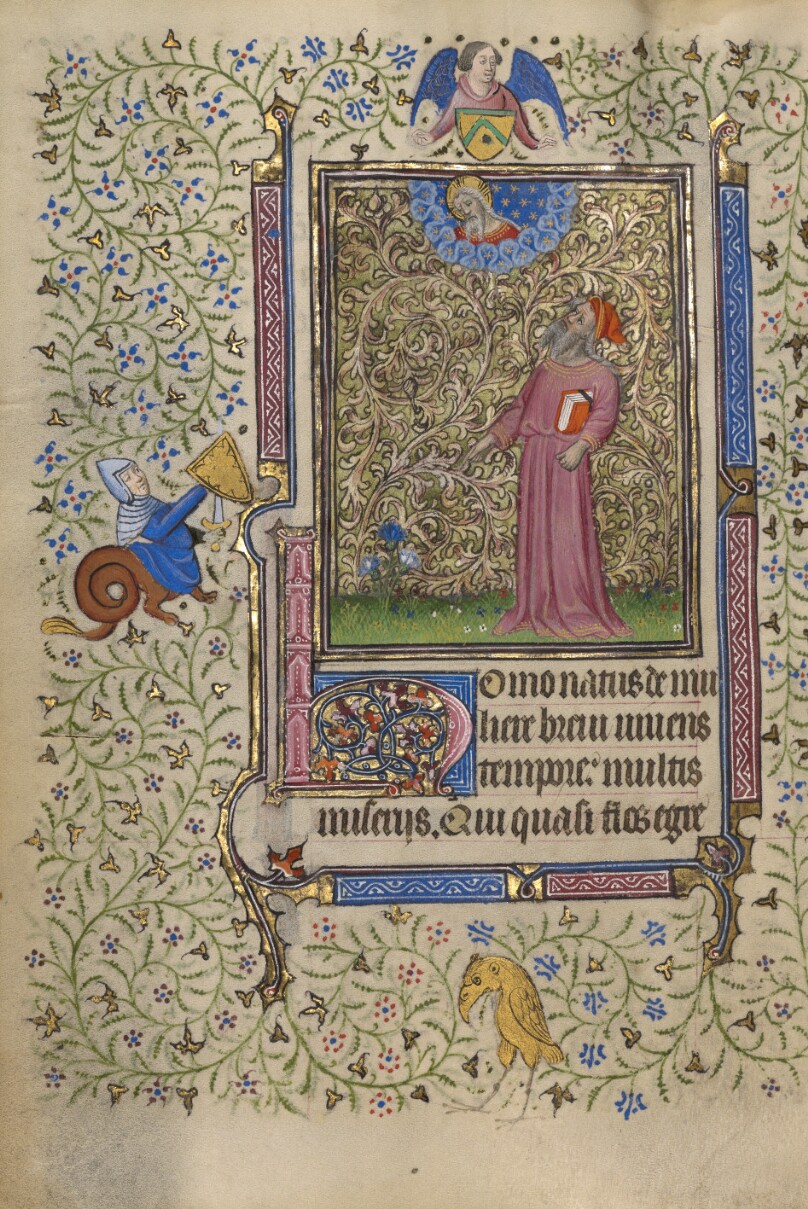 Homo natus de mu
liere breui uiuens
tempore: multis
miseriis. Qui quasi flos egre